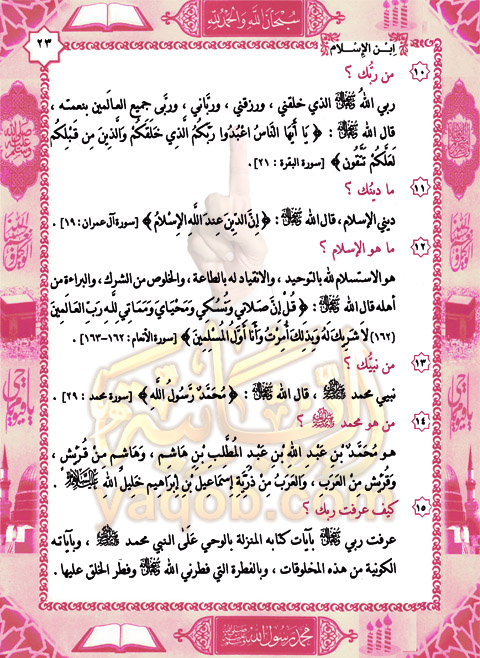 سُبْحَانَ اللَّهِ وَالْحَمْدُ لِلَّهِ
٢٣
ابْن الإِسْلام
١٠ من ربُّك ؟
ربي اللهُ ﷻ الذي خلقني ، ورزقني ، وربَّاني ، وربَّى جميع العالمين بنعمته ،
قال الله ﷻ : ﴿ يَا أَيُّهَا النَّاسُ اعْبُدُوا رَبَّكُمُ الَّذِي خَلَقَكُمْ وَالَّذِينَ مِن قَبْلِكُمْ
لَعَلَّكُمْ تَتَّقُونَ ﴾ [سورة البقرة : ٢١] .
١١ ما دينُك ؟
ديني الإسلام ، قال الله ﷻ : ﴿ إِنَّ الدِّينَ عِندَ اللَّهِ الإِسْلامُ ﴾ [سورة آل عمران : ١٩] .
١٢ ما هو الإسلام ؟
هو الاستسلام لله بالتوحيد ، والانقياد له بالطاعة ، والخلوص من الشرك ، والبراءة من
أهله قال الله ﷻ : ﴿ قُلْ إِنَّ صَلاتِي وَنُسُكِي وَمَحْيَايَ وَمَمَاتِي لِلَّهِ رَبِّ الْعَالَمِينَ
(١٦٢) لا شَرِيكَ لَهُ وَبِذَلِكَ أُمِرْتُ وَأَنَا أَوَّلُ الْمُسْلِمِينَ ﴾ [سورة الأنعام : ١٦٢-١٦٣] .
١٣ من نبيُّك ؟
نبيي محمد ﷺ ، قال الله ﷻ : ﴿ مُحَمَّدٌ رَّسُولُ اللَّهِ ﴾ [سورة محمد : ٢٩] .
١٤ من هو محمد ﷺ ؟
هو مُحَمَّدٌ بْن عَبْدِ اللهِ بْنِ عَبْدِ الْمُطَّلِبِ بْنِ هَاشِمٍ ، وَهَاشِم مِنْ قُرَيْشٍ ،
وَقُرَيْش مِنْ الْعَرَبِ ، وَالْعَرَبُ مِنْ ذُرِّيَّةِ إِسْمَاعِيلَ بْنِ إِبْرَاهِيمَ خَلِيلُ اللهِ عليه السلام .
١٥ كيف عرفت ربك ؟
عرفت ربي ﷻ بآيات كتابه المنزلة بالوحي عَلَىٰ النبي محمد ﷺ ، وبآياته
الكونية من هذه المخلوقات ، وبالفطرة التي فطرني الله ﷻ وفطَر الخلق عليها .
yaqob.com
محمد رسول الله ﷺ